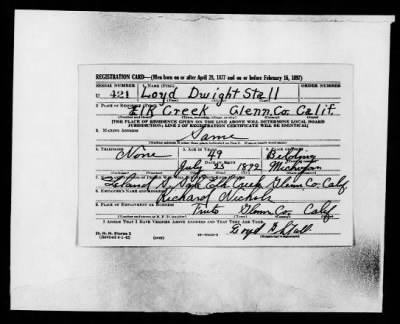 REGISTRATION CARD—(Men born on or after April 28, 1877 and on or before February 16, 1897)
SERIAL NUMBER 1. NAME (Print) ORDER NUMBER
U 421 Loyd Dwight Stall
(First) (Middle) (Last)
2. PLACE OF RESIDENCE (Print)
Elk Creek Glenn Co. Calif.
[THE PLACE OF RESIDENCE GIVEN ON THE LINE ABOVE WILL DETERMINE LOCAL BOARD
JURISDICTION; LINE 2 OF REGISTRATION CERTIFICATE WILL BE IDENTICAL]
3. MAILING ADDRESS
Same
4. TELEPHONE 5. AGE IN YEARS 6. PLACE OF BIRTH
None 49 Belding
DATE OF BIRTH
July 23 1892 Michigan
7.
Leland S. Elk Creek Glenn Co. Calif
8. EMPLOYER'S NAME AND ADDRESS
Richard Nichols
9. PLACE OF EMPLOYMENT OR BUSINESS
Fruto Glenn Co. Calif
I AFFIRM THAT I HAVE VERIFIED ABOVE ANSWERS AND THAT THEY ARE TRUE.
D. S. S. Form 1
Loyd D Stall